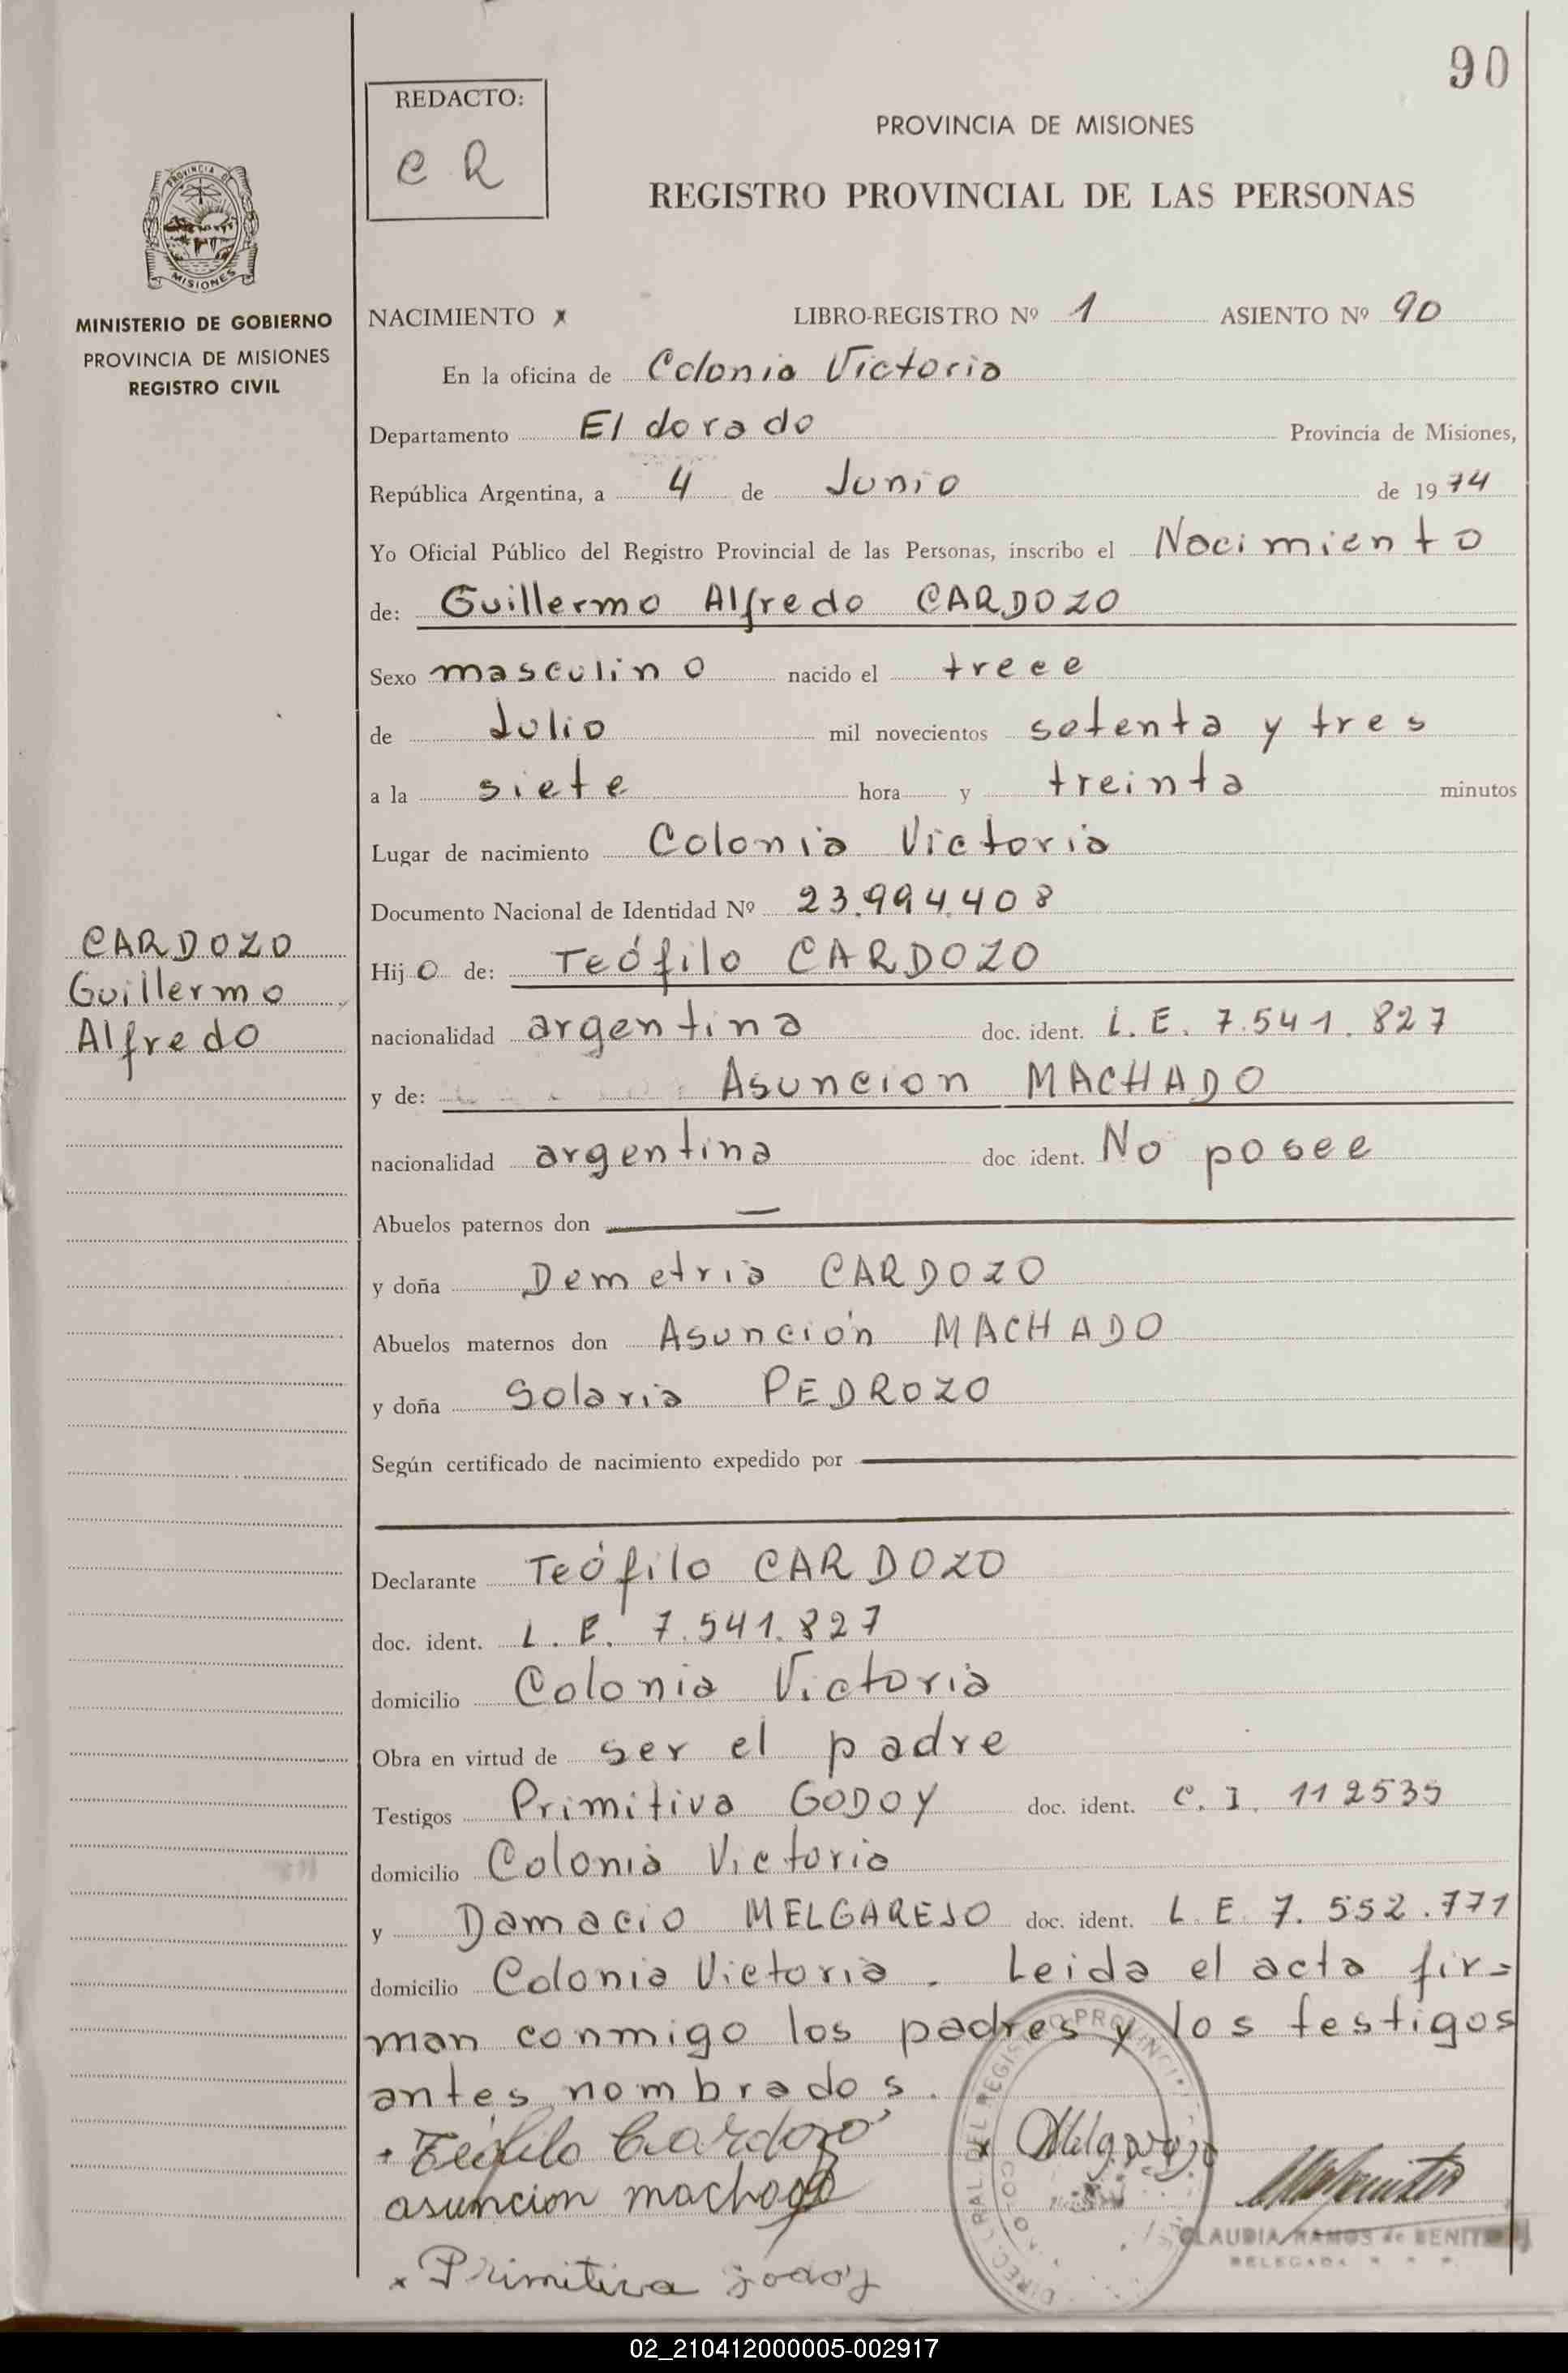 90
REDACTO:
C R
PROVINCIA DE MISIONES
REGISTRO PROVINCIAL DE LAS PERSONAS
PROVINCIA DE
MISIONES
MINISTERIO DE GOBIERNO
PROVINCIA DE MISIONES
REGISTRO CIVIL
CARDOZO
Guillermo
Alfredo
NACIMIENTO x LIBRO-REGISTRO Nº 1 ASIENTO Nº 90
En la oficina de Colonia Victoria
Departamento El dorado Provincia de Misiones,
República Argentina, a 4 de Junio de 1974
Yo Oficial Público del Registro Provincial de las Personas, inscribo el Nacimiento
de: Guillermo Alfredo CARDOZO
Sexo masculino nacido el trece
de Julio mil novecientos setenta y tres
a la siete hora y treinta minutos
Lugar de nacimiento Colonia Victoria
Documento Nacional de Identidad Nº 23.994.408
Hijo de: Teófilo CARDOZO
nacionalidad argentina doc. ident. L.E. 7.541.827
y de: Asuncion MACHADO
nacionalidad argentina doc ident. No posee
Abuelos paternos don —
y doña Demetria CARDOZO
Abuelos maternos don Asunción MACHADO
y doña Solaria PEDROZO
Según certificado de nacimiento expedido por
Declarante Teófilo CARDOZO
doc. ident. L.E. 7.541.827
domicilio Colonia Victoria
Obra en virtud de ser el padre
Testigos Primitiva GODOY doc. ident. C.I. 112535
domicilio Colonia Victoria
y Damacio MELGAREJO doc. ident. L.E. 7.552.771
domicilio Colonia Victoria. Leida el acta fir=
man conmigo los padres y los testigos
antes nombrados.
Teófilo Cardozo
x Melgarejo
asuncion machado
CLAUDIA RAMOS de BENITEZ
DELEGADA
x Primitiva godoy
02_210412000005-002917